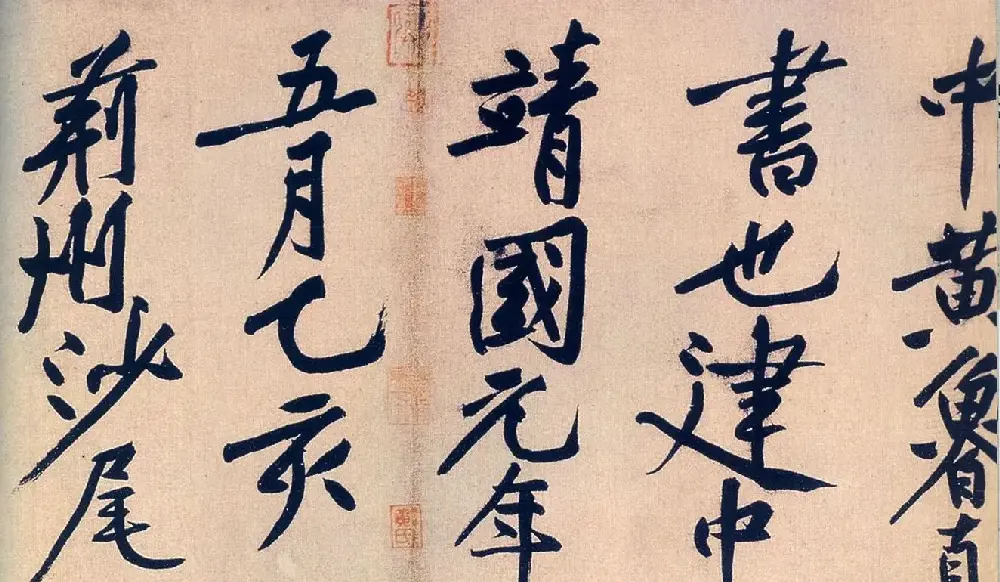 中黄魯直
書也建中
靖國元年
五月乙亥
荊州沙尾